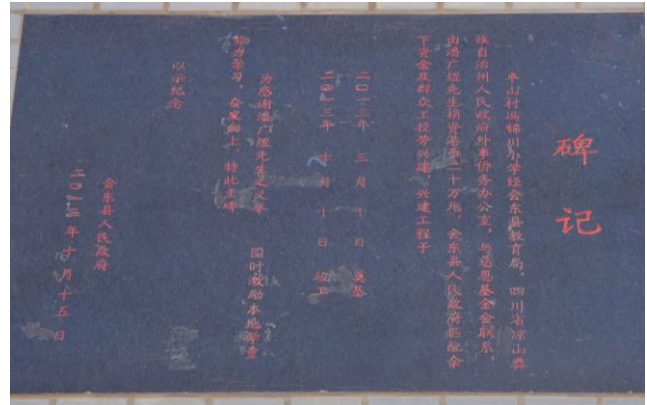 碑记
单山村冯锦川小学经会东县教育局、四川省凉山彝
族自治州人民政府外事侨务办公室,与慈恩基金会联系,
由潘广煜先生捐资港币二十万元,会东县人民政府匹配余
下资金及群众工投劳兴建,兴建工程于
二〇一三年 三月十日 奠基
二〇一三年 十月十日 竣工
为感谢潘广煜先生之义举 同时激励本地学童
努力学习,奋发向上,特此立碑
以示纪念
会东县人民政府
二〇一三年十月十五日